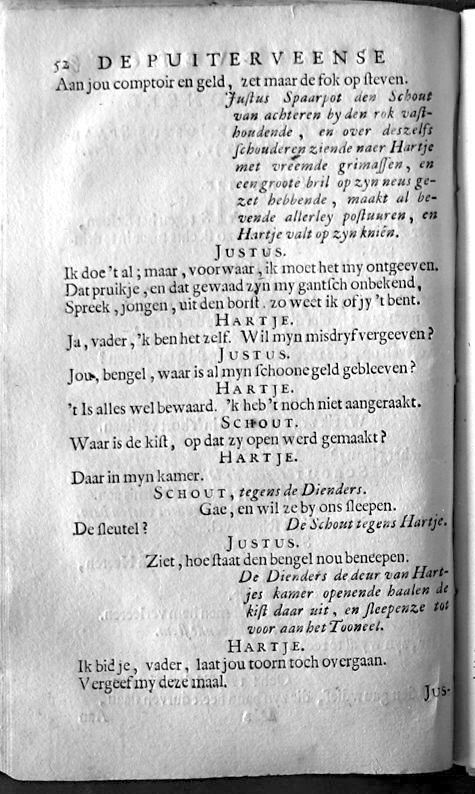 52 DE PUITERVEENSE
Aan jou comptoir en geld, zet maar de fok op steven.
Justus Spaarpot den Schout
van achteren by den rok vast-
houdende, en over deszelfs
schouderen ziende naer Hartje
met vreemde grimassen, en
een groote bril op zyn neus ge-
zet hebbende, maakt al be-
vende allerley postuuren, en
Hartje valt op zyn kniën.
JUSTUS.
Ik doe 't al; maar, voorwaar, ik moet het my ontgeeven.
Dat pruikje, en dat gewaad zyn my gantsch onbekend,
Spreek, jongen, uit den borst. zo weet ik of jy 't bent.
HARTJE.
Ja, vader, 'k ben het zelf. Wil myn misdryf vergeeven?
JUSTUS.
Jou, bengel, waar is al myn schoone geld gebleeven?
HARTJE.
't Is alles wel bewaard. 'k heb 't noch niet aangeraakt.
SCHOUT.
Waar is de kist, op dat zy open werd gemaakt?
HARTJE.
Daar in myn kamer.
SCHOUT, tegens de Dienders.
Gae, en wil ze by ons sleepen.
De sleutel? De Schout tegens Hartje.
JUSTUS.
Ziet, hoe staat den bengel nou beneepen.
De Dienders de deur van Hart-
jes kamer openende haalen de
kist daar uit, en sleepenze tot
voor aan het Tooneel.
HARTJE.
Ik bid je, vader, laat jou toorn toch overgaan.
Vergeef my deze maal.
JUS-